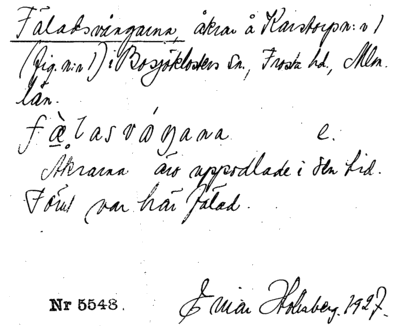 Fäladsvångarna, åkrar å Karstorp n:r 1
(fig. n:r 1) i Bosjöklosters sn., Frosta hd, Mlm.
län.
fä̀lasváŋana e.
Åkrarna äro uppodlade i sen tid.
Förut var här fälad.
Nr 5543. Einar Holmberg. 1927.